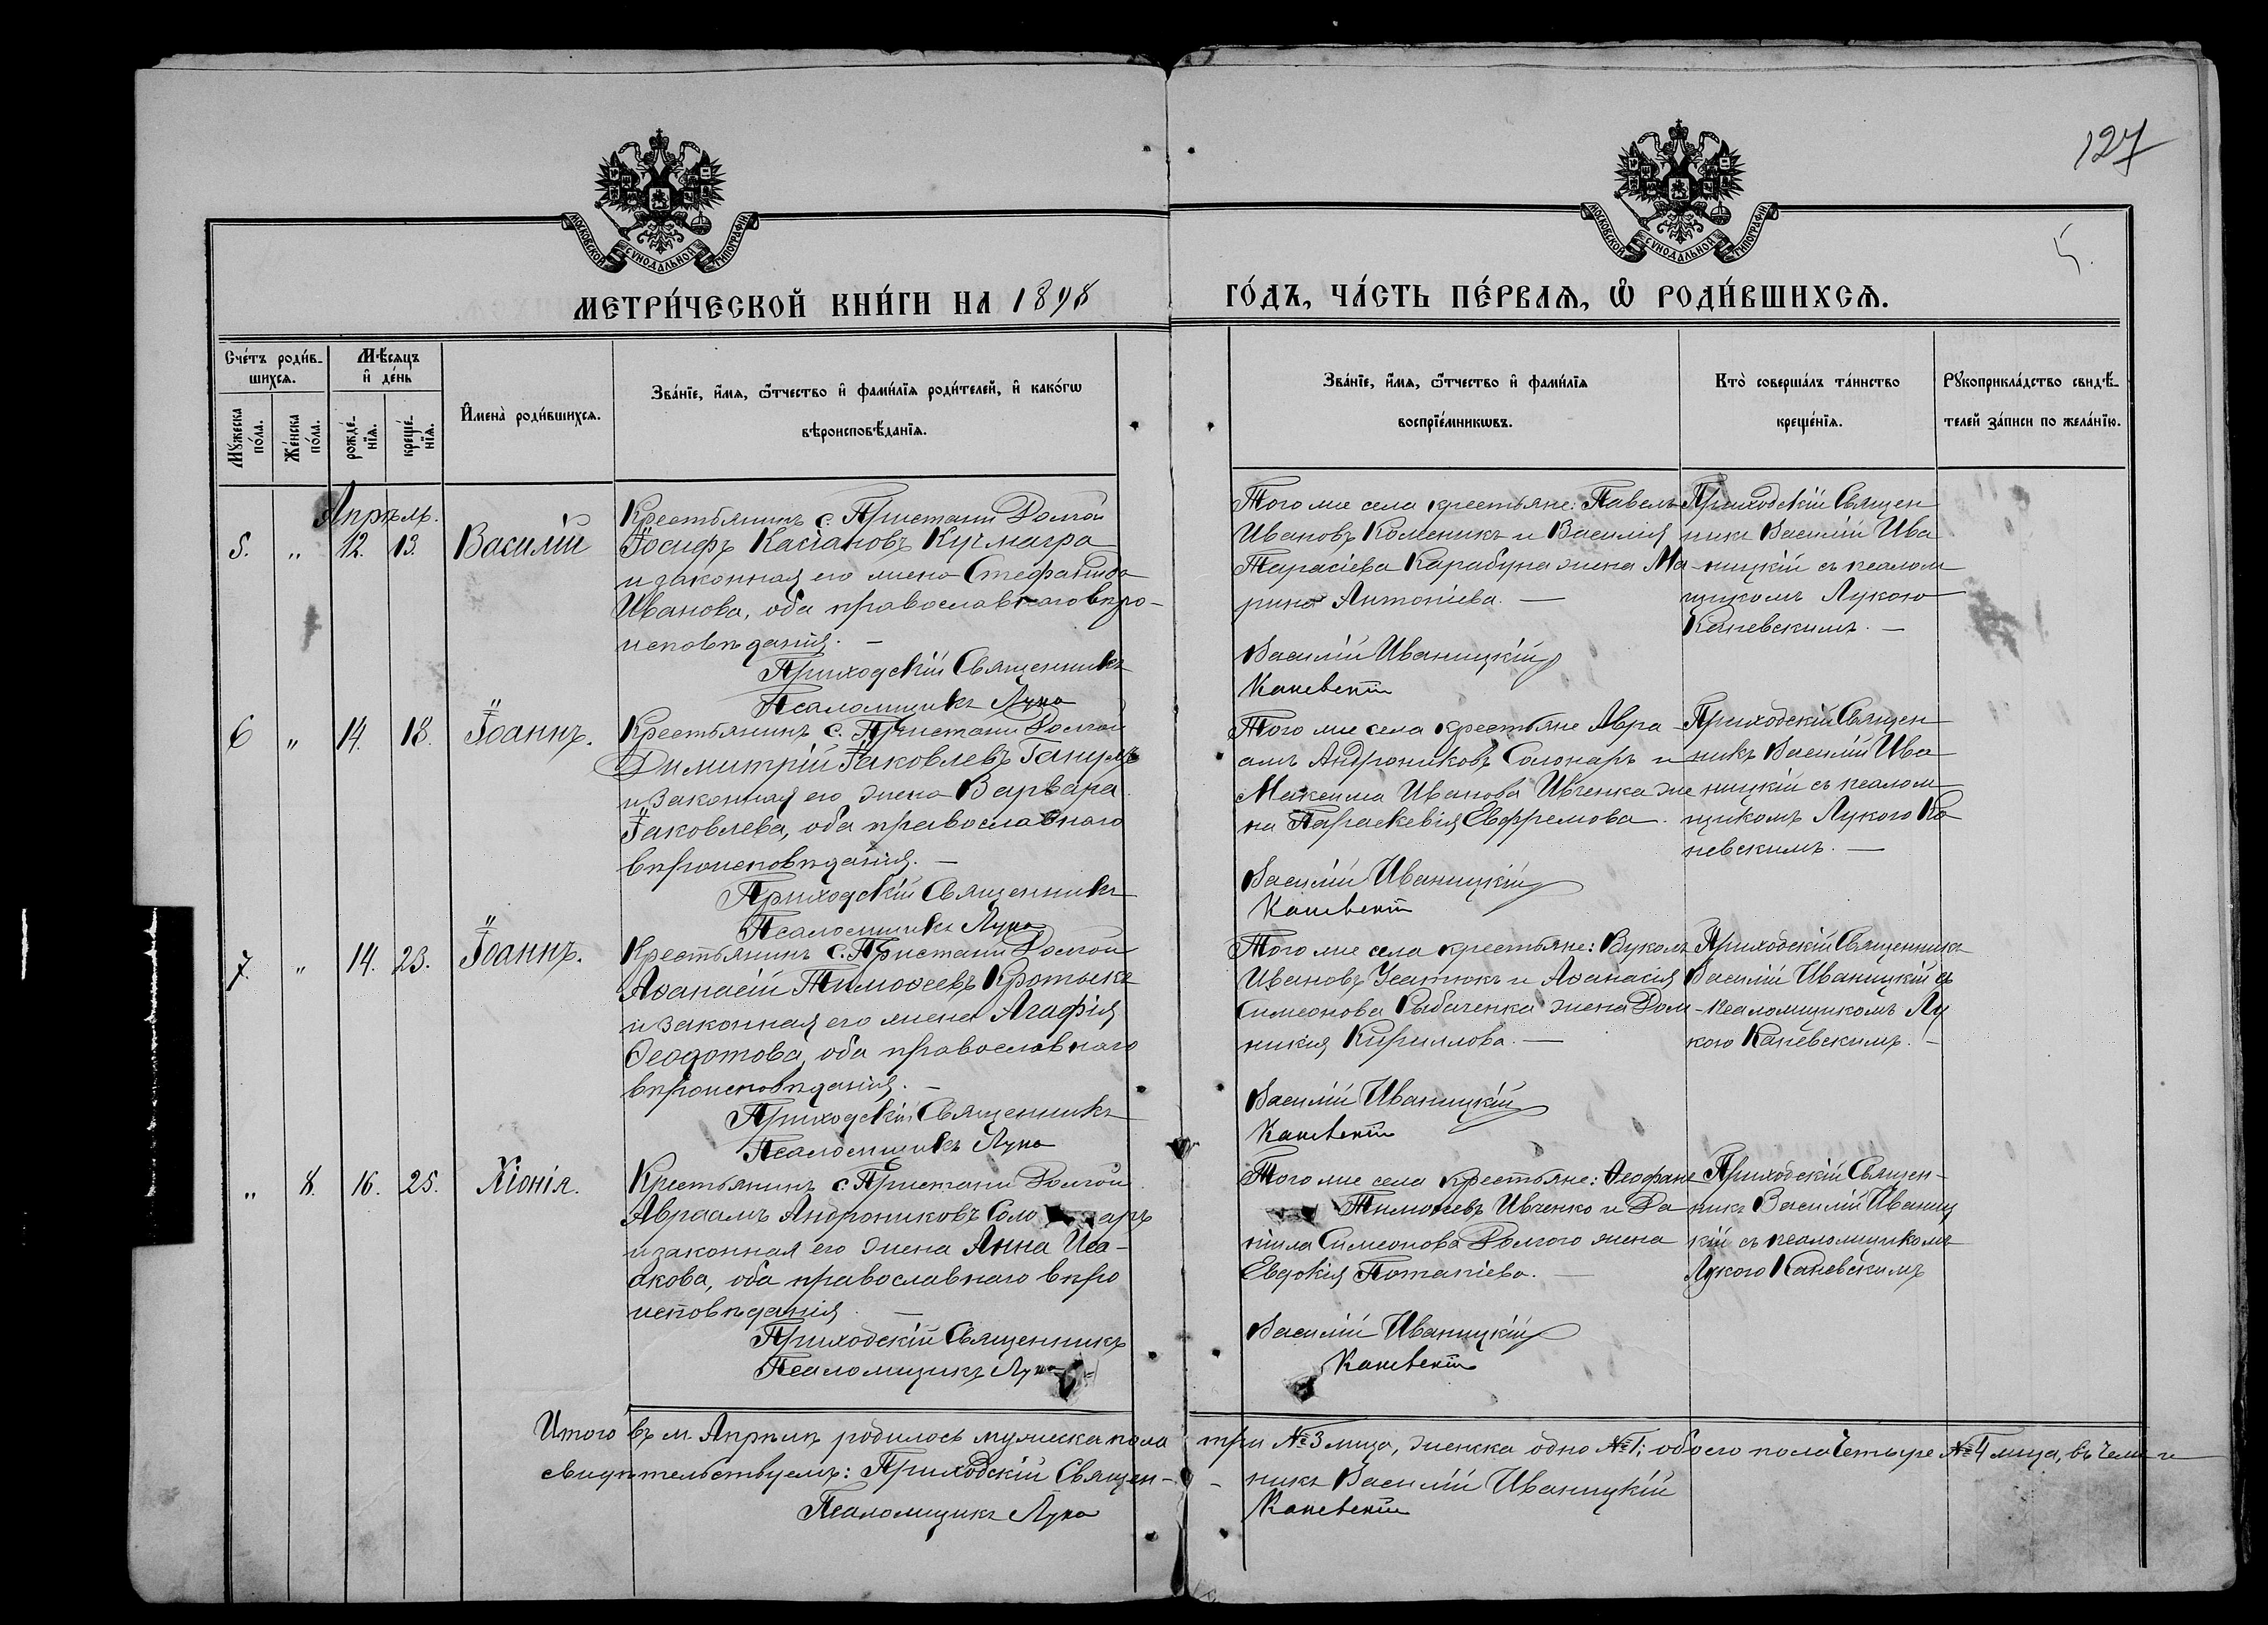 127
5.
МОСКОВСКОЙ СѴНОДАЛЬНОЙ ТИПОГРАФІИ
МОСКОВСКОЙ СѴНОДАЛЬНОЙ ТИПОГРАФІИ
МЕТРИ́ЧЕСКОЙ КНИ́ГИ НА 1898
ГО́ДЪ, ЧА́СТЬ ПЕ́РВАѦ, Ѡ҆ РОДИ́ВШИХСѦ.
Сче́тъ роди́в-
шихсѧ.
Мѣ́сяцъ
и҆ де́нь
Мꙋ́жеска
по́ла.
Же́нска
по́ла.
рожде́-
нїѧ.
креще́-
нїѧ.
И҆мена̀ роди́вшихсѧ.
Зва́нїе, и҆́мѧ, ѻ҆́тчество и҆ фами́лїѧ роди́телей, и҆ како́гѡ
вѣроисповѣ́данїѧ.
Зва́нїе, и҆́мѧ, ѻ҆́тчество и҆ фами́лїѧ
воспрїе́мникѡвъ.
Кто̀ соверша́лъ та́инство
креще́нїѧ.
Рꙋкоприкла́дство свидѣ́-
телей за́писи по жела́нїю.
Апрѣль.
5. „ 12. 13. Василій
Крестьянинъ с. Пристани Долгой
Іосифъ Касіановъ Кучмагра
и законная его жена Стефанида
Иванова, оба православнаго вѣро-
исповѣданія. —
Приходскій Священникъ
Псаломщикъ Лука
Того же села крестьяне: Павелъ
Ивановъ Коменикъ и Василія
Тарасіева Карабуна жена Ма-
рина Антоніева. —
Василій Иваницкій
Каневскій
Приходскій Священ
никъ Василій Ива
ницкій съ псалом
щикомъ Лукою
Каневскимъ. —
6 „ 14. 18. Іоаннъ.
Крестьянинъ с. Пристани Долгой
Димитрій Іаковлевъ Ганулъ
и законная его жена Варвара
Іаковлева, оба православнаго
вѣроисповѣданія. —
Приходскій Священникъ
Псаломщикъ Лука
Того же села крестьяне Авра-
амъ Андрониковъ Солонаръ и
Максима Иванова Ивченка же
на Параскевія Евфремова.
Василій Иваницкій
Каневскій
Приходскій Священ
никъ Василій Ива
ницкій съ псалом
щикомъ Лукою Ка
невскимъ. —
7. „ 14. 23. Іоаннъ.
Крестьянинъ с. Пристани Долгой
Аѳанасій Тимоѳеевъ Кротыкъ
и законная его жена Агафія
Ѳеодотова, оба православнаго
вѣроисповѣданія. —
Приходскій Священникъ
Псаломщикъ Лука
Того же села крестьяне: Вуколъ
Ивановъ Усатюкъ и Аѳанасія
Симеонова Рыбаченка жена Дом-
никія Кириллова. —
Василій Иваницкій
Каневскій
Приходскій Священникъ
Василій Иваницкій съ
псаломщикомъ Лу
кою Каневскимъ. —
„ 8. 16. 25. Хіонія.
Крестьянинъ с. Пристани Долгой
Авраамъ Андрониковъ Соло наръ
и законная его жена Анна Иса-
акова, оба православнаго вѣро
исповѣданія. —
Приходскій Священникъ
Псаломщикъ Лука
Того же села крестьяне: Ѳеофанъ
Тимоѳеевъ Ивченко и Да
ніила Симеонова Долгого жена
Евдокія Потапіева. —
Василій Иваницкій
Каневскій
Приходскій Священ-
никъ Василій Иваниц
кій съ псаломщикомъ
Лукою Каневскимъ
Итого въ м. Апрѣлѣ родилось мужеска пола три №3 лица, женска одно №1; обоего пола четыре №4 лица, въ чемъ и
свидѣтельствуемъ: Приходскій Священ-никъ Василій Иваницкій
Псаломщикъ Лука Каневскій